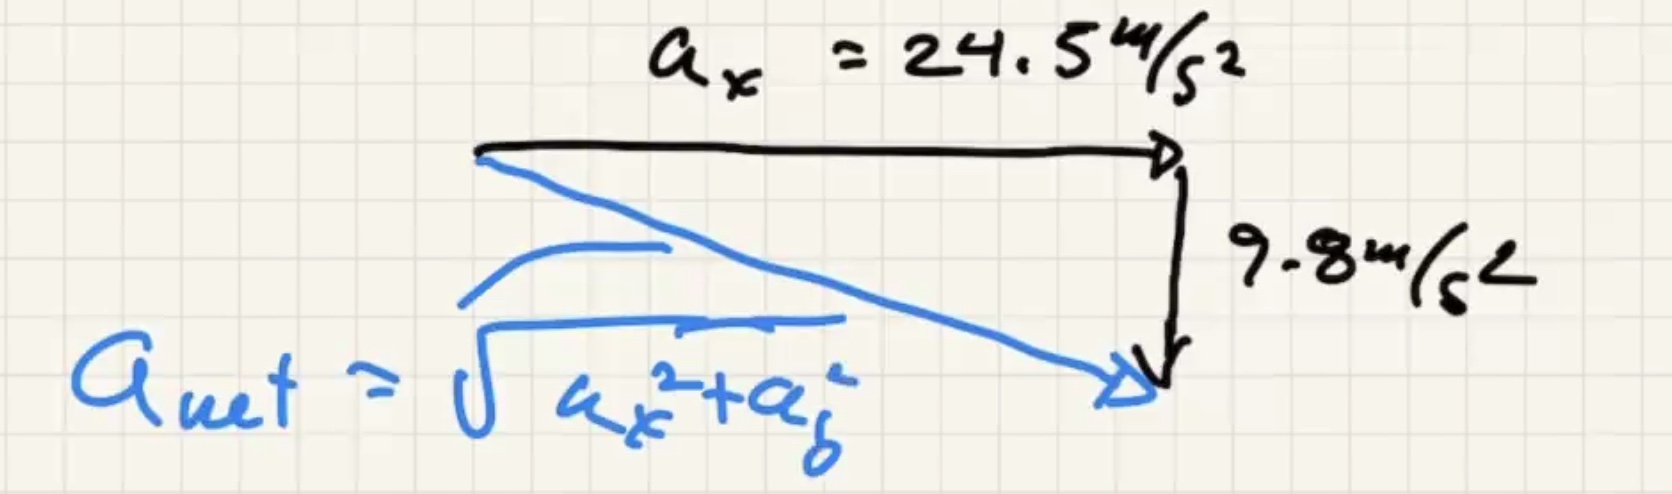 aₓ = 24.5 m/s²
9.8 m/s²
a_net = √(aₓ² + a_y²)